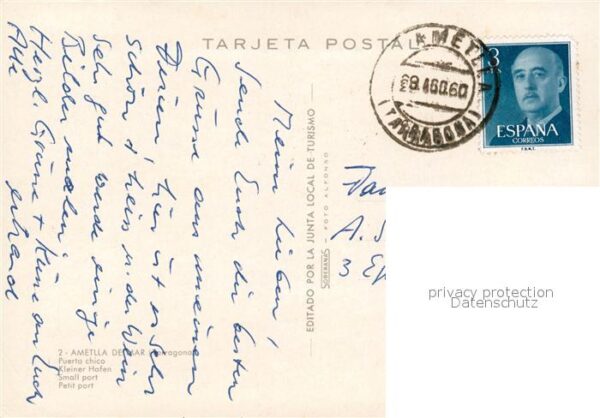 TARJETA POSTAL
AMETLLA
(TARRAGONA)
AGO.60
3
ESPAÑA
CORREOS
F.N.M.T.
Mein Lieben!
Sende Euch die besten
Grüsse aus meinen
Ferien, hier ist es sehr
schön & heiss u. der Wein
sehr gut werde einige
Bilder malen.
Herzl. Grüsse + Küsse an Euch
Alle
EDITADO POR LA JUNTA LOCAL DE TURISMO
SOBERANAS - FOTO ALFONSO
Fam
A. S
3 Ep
privacy protection
Datenschutz
2 - AMETLLA DEL MAR (Tarragona)
Puerto chico
Kleiner Hafen
Small port
Petit port